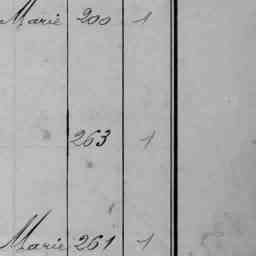 Marie 200 1
263 1
Marie 261 1